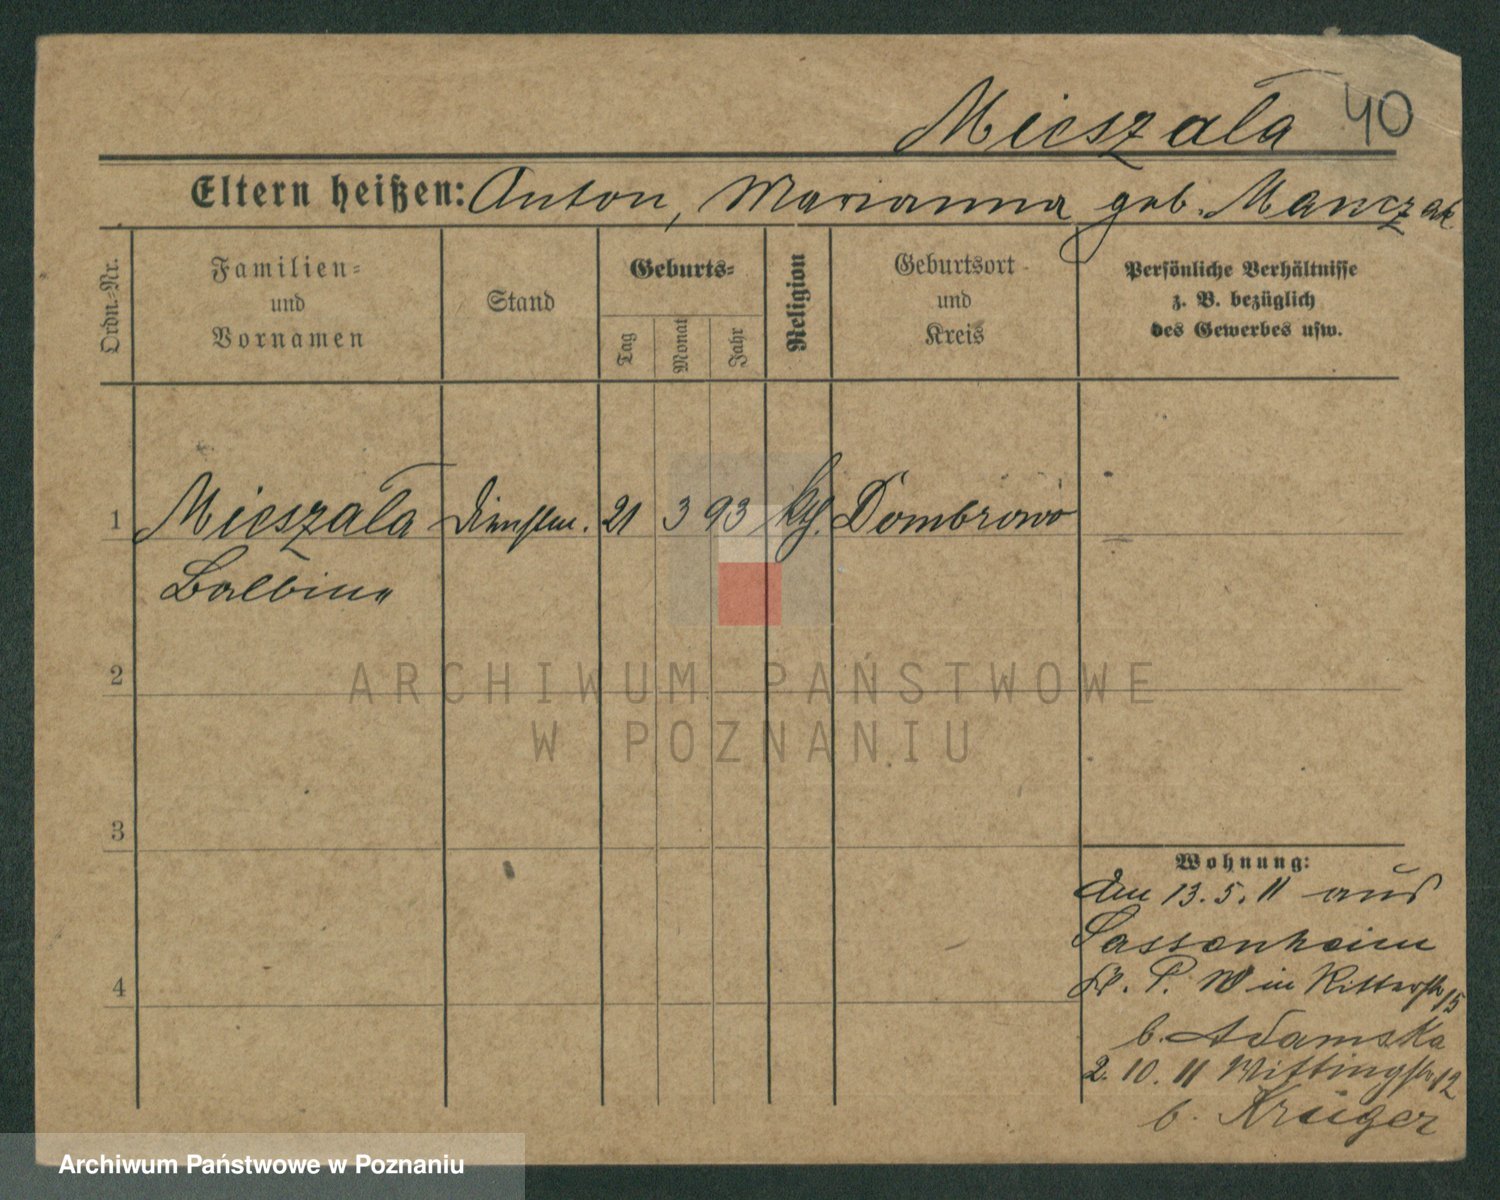 Mieszała 40
Eltern heißen: Anton, Marianna geb. Manczak
Ordn.-Nr.
Familien-
und
Vornamen
Stand
Geburts-
Tag
Monat
Jahr
Religion
Geburtsort
und
Kreis
Persönliche Verhältnisse
z. B. bezüglich
des Gewerbes usw.
1 Mieszała 21 3 93 kth. Dombrowo
Balbina
2
3
4
Wohnung:
den 13.5.11 aus
Sassenheim
Kr. P. W in Ritterstr 15
b. Adamska
2. 10. 11 Wittingstr 12
b. Krüger
ARCHIWUM PAŃSTWOWE
W POZNANIU
Archiwum Państwowe w Poznaniu